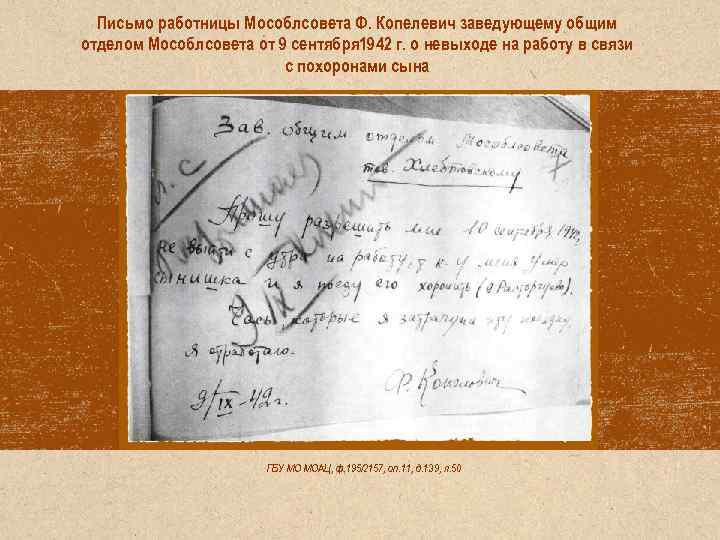 Письмо работницы Мособлсовета Ф. Копелевич заведующему общим
отделом Мособлсовета от 9 сентября1942 г. о невыходе на работу в связи
с похоронами сына
Зав. общим отделом Мособлсовета
тов. Хлебтовскому
Прошу разрешить мне 10 сентября 1942,
не выйти с утра на работу, т к у меня умер
сынишка и я поеду его хоронить (в Расторгуево).
Часы, которые я затрачу на эту поездку,
я отработаю.
9/IX
Ф. Копелевич
9/IX-42г.
ГБУ МО МОАЦ, ф.195/2157, оп.11, д.139, л.50